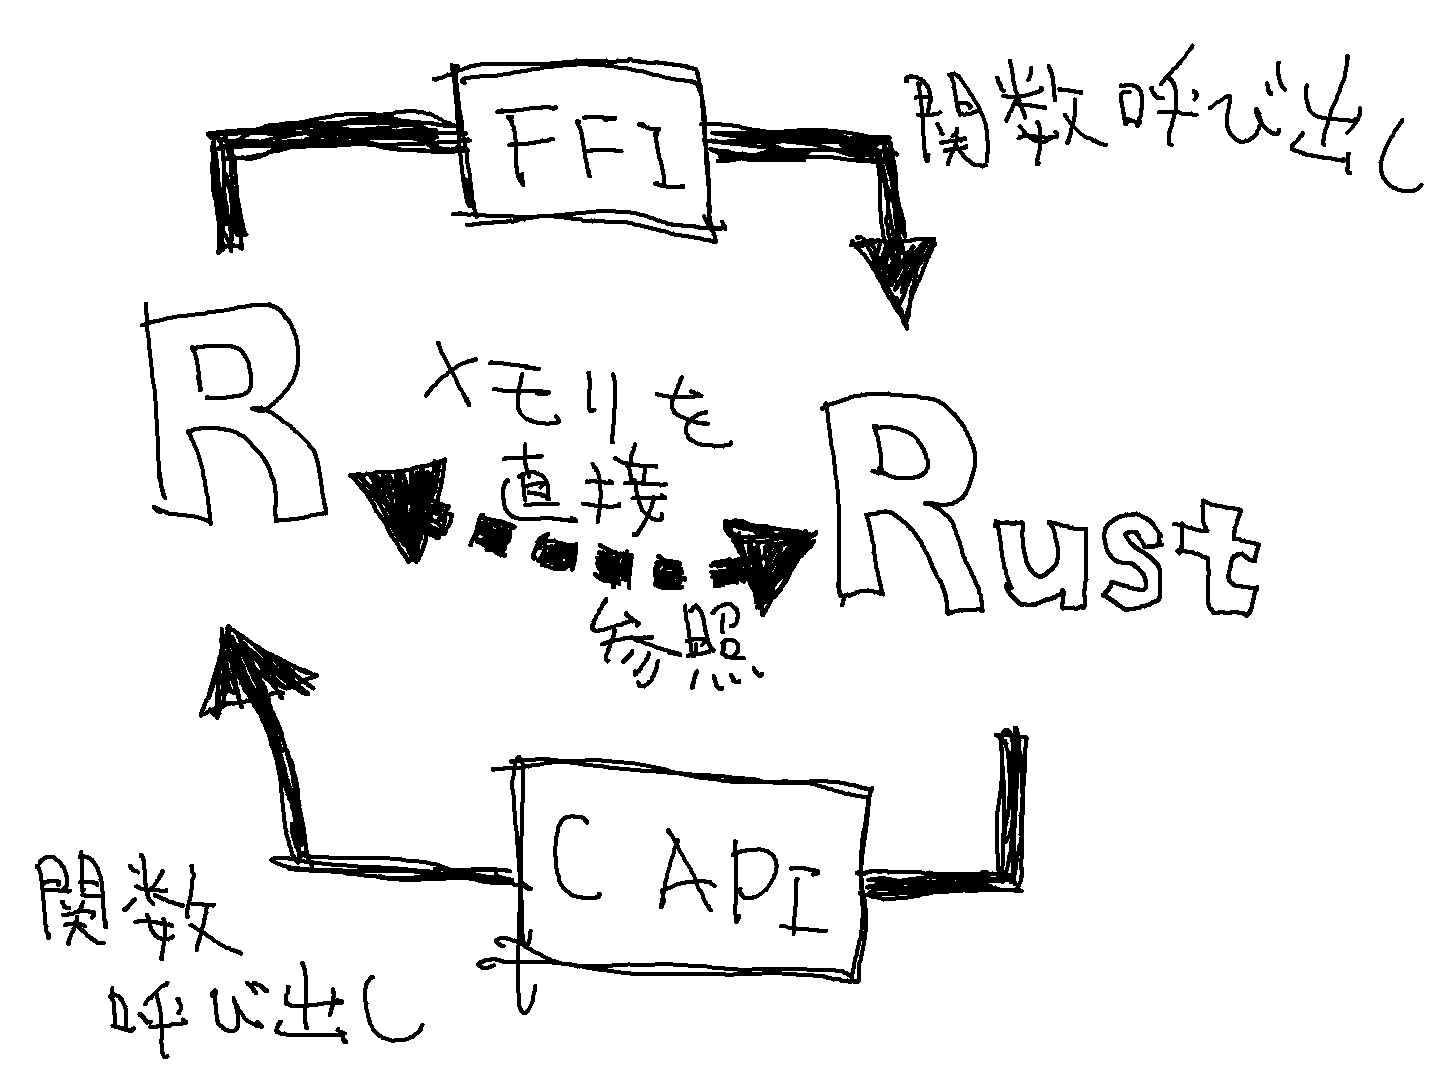 FFI
関数呼び出し
R
メモリを
直接
参照
Rust
C API
関数
呼び出し